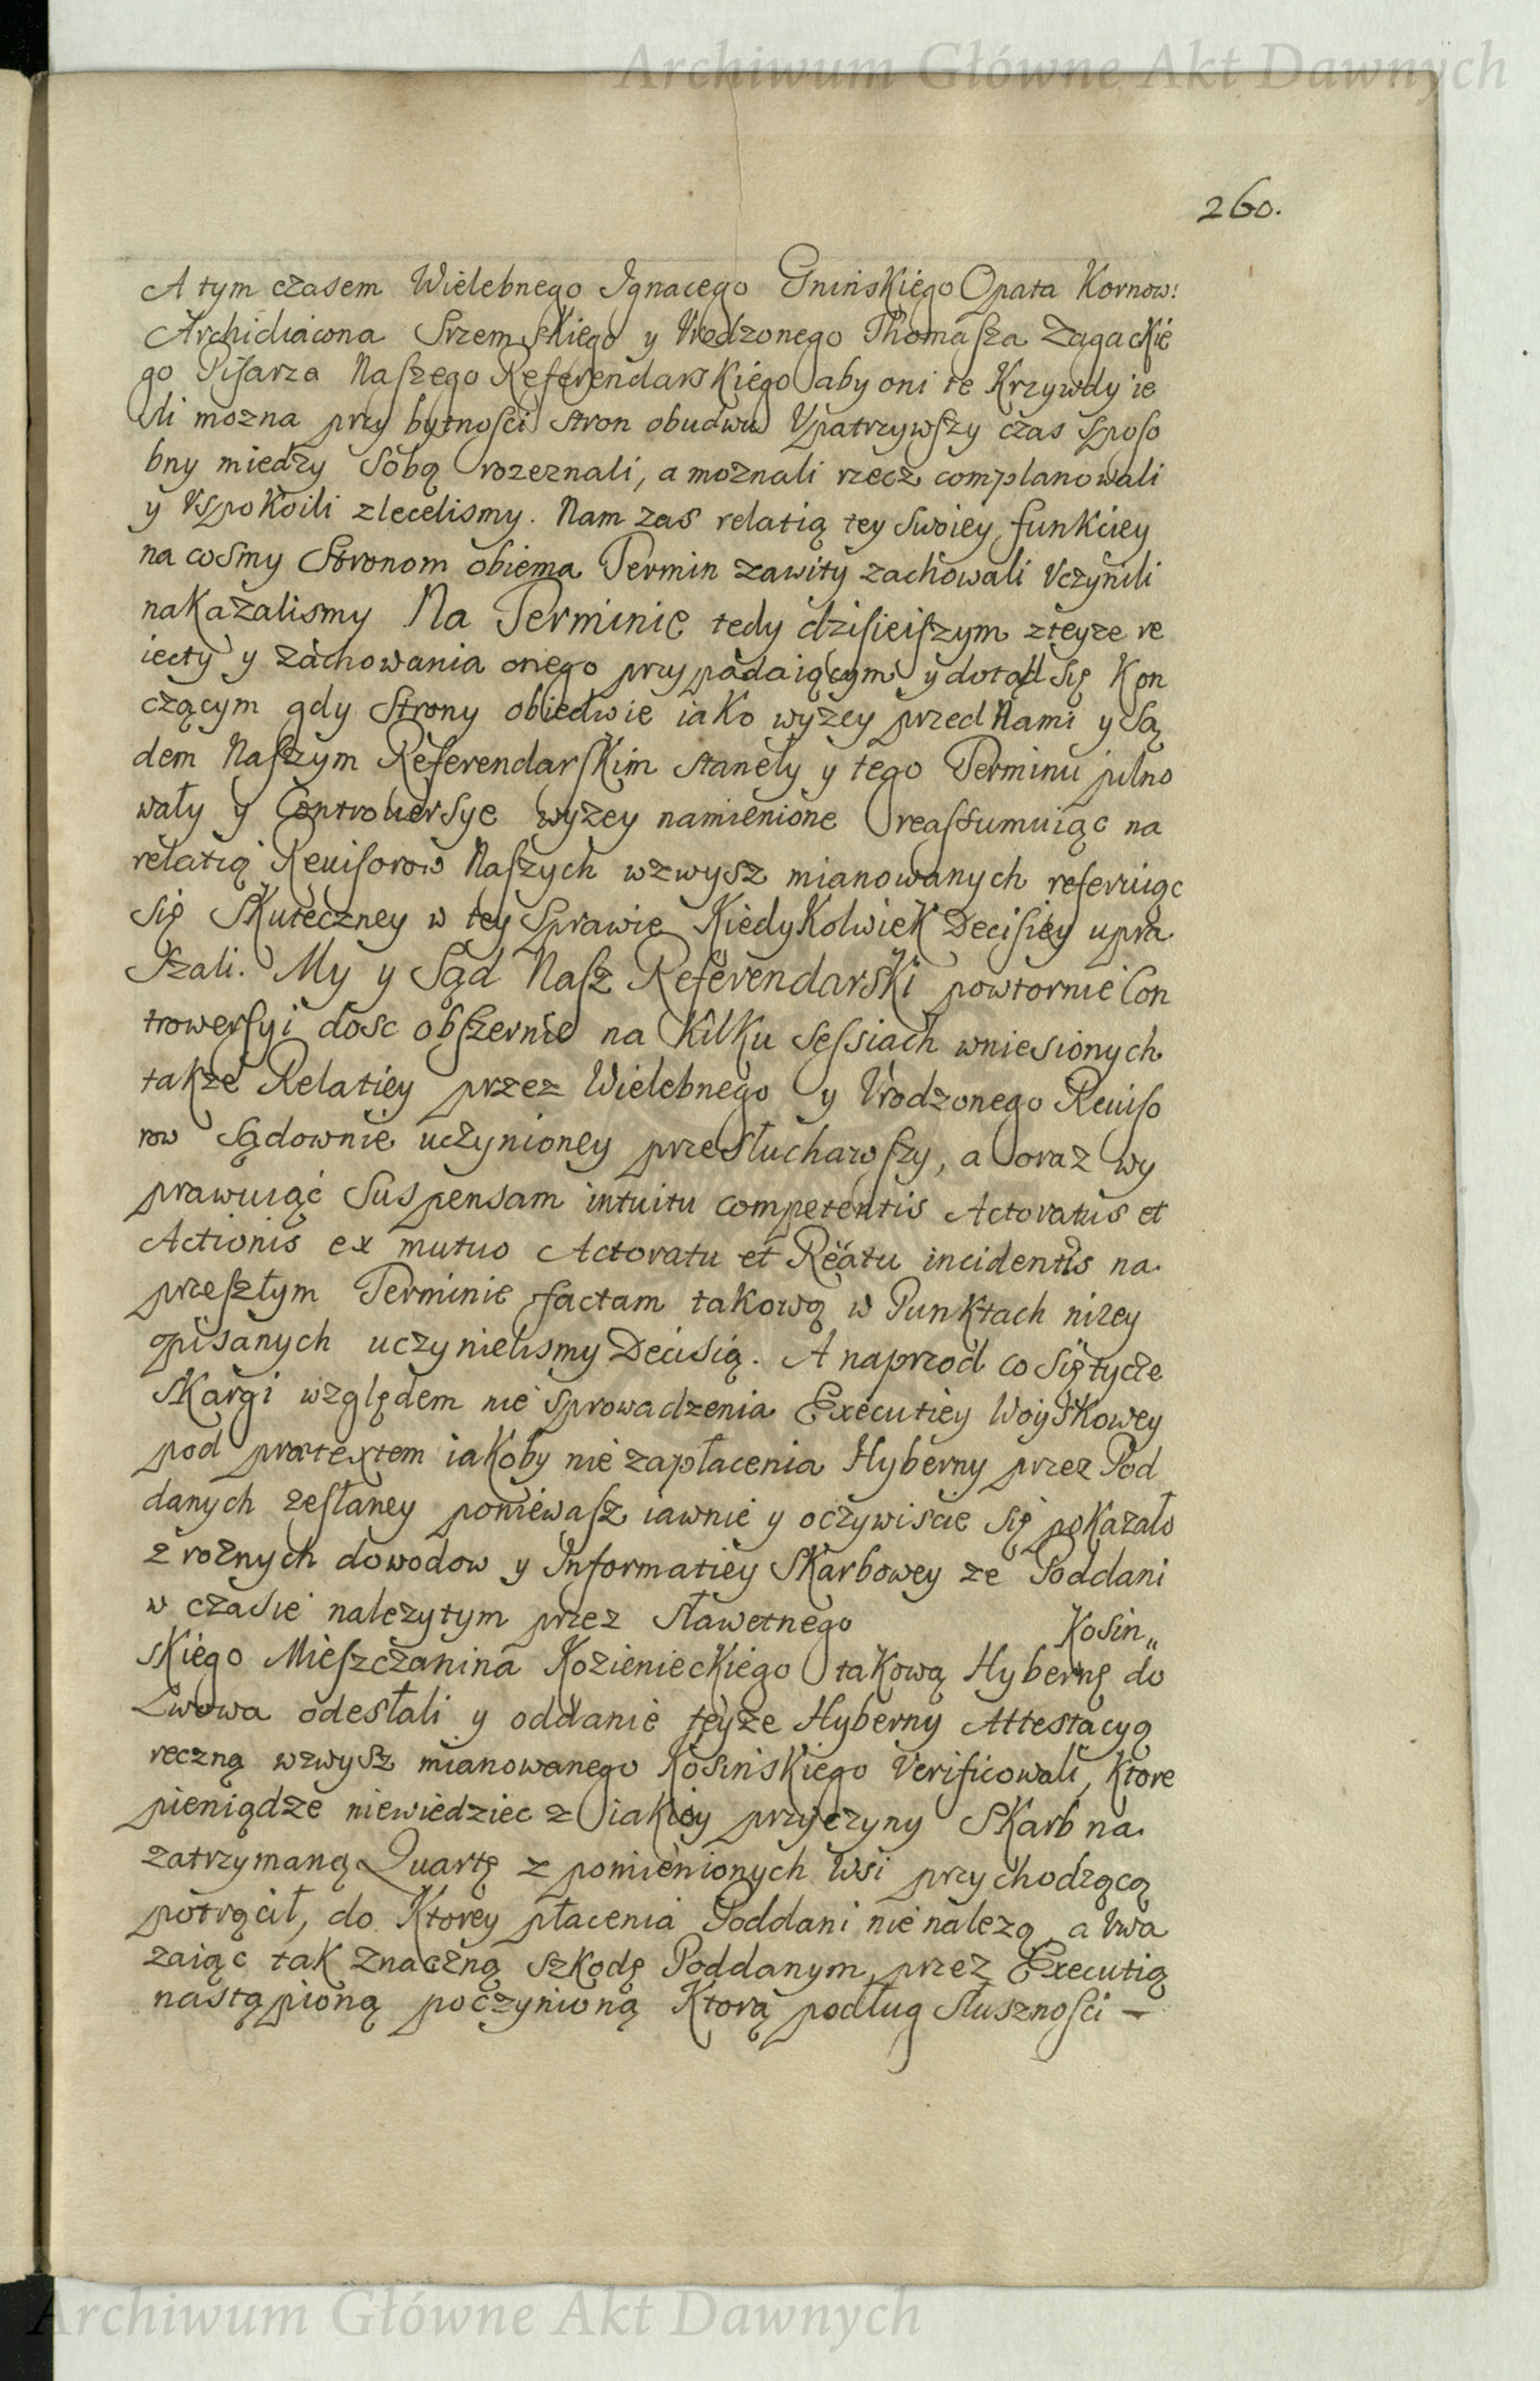 Archiwum Główne Akt Dawnych
260.
A tym czasem Wielebnego Ignacego Gninskiego Opata Kornow:
Archidiacona Srzemskiego y Vrodzonego Thomasza Zagackie
go Pisarza Naszego Referendarskiego aby oni te Krzywdy ie
sli mozna przy bytnosci stron obudwu Vpatrzywszy czas sposo
bny miedzy sobą rozeznali, a moznali rzecz complanowali
y Vspokoili zlecelismy. Nam zas relatią tey swoiey funkciey
na cosmy Stronom obiema Termin zawity zachowali Vczynili
nakazalismy Na Terminie tedy dzisieiszym zteyze re
iecty y zachowania onego przypadaiącym y dotąd się Kon
czącym gdy Strony obiedwie iako wyzey przed Nami y Są
dem Naszym Referendarskim staneły y tego Terminu pilno
wały y Controuersye wyzey namienione reassumuiąc na
relatią Reuisorow Naszych wzwysz mianowanych referuiąc
się Skuteczney w tey Sprawie KiedyKolwiek Decisiey upra
szali. My y Sąd Nasz Referendarski powtornie Con
trowersyi dosc obszernie na Kilku Sessiach wniesionych
takze Relatiey przez Wielebnego y Vrodzonego Reuiso
row Sądownie uczynioney przesłuchawszy, a oraz wy
prawuiąc Suspensam intuitu competentis Actoratus et
Actionis ex mutuo Actoratu et Reatu incidentis na
przeszłym Terminie factam takową w Punktach nizey
opisanych uczynielismy Decisią. A naprzod co się tycze
Skargi względem nie sprowadzenia Executiey Woyskowey
pod praetextem iakoby nie zapłacenia Hyberny przez Pod
danych zesłaney poniewasz iawnie y oczywiscie się pokazało
z roznych dowodow y Informatiey Skarbowey ze Poddani
w czasie nalezytym przez Sławetnego Kosin„
skiego Mieszczanina Kozienieckiego takową Hybernę do
Lwowa odesłali y oddanie teyze Hyberny Attestacyą
reczną wzwysz mianowanego Kosinskiego Verificowali, Ktore
pieniądze niewiedziec z iakiey przyczyny Skarb na
zatrzymaną Quartę z pomienionych Wsi przychodzącą
potrącił, do Ktorey płacenia Poddani nie nalezą, a Vwa
zaiąc tak znaczną szkodę Poddanym przez Executią
nastąpioną poczynioną Ktorą podług Słusznosci –
Archiwum Główne Akt Dawnych